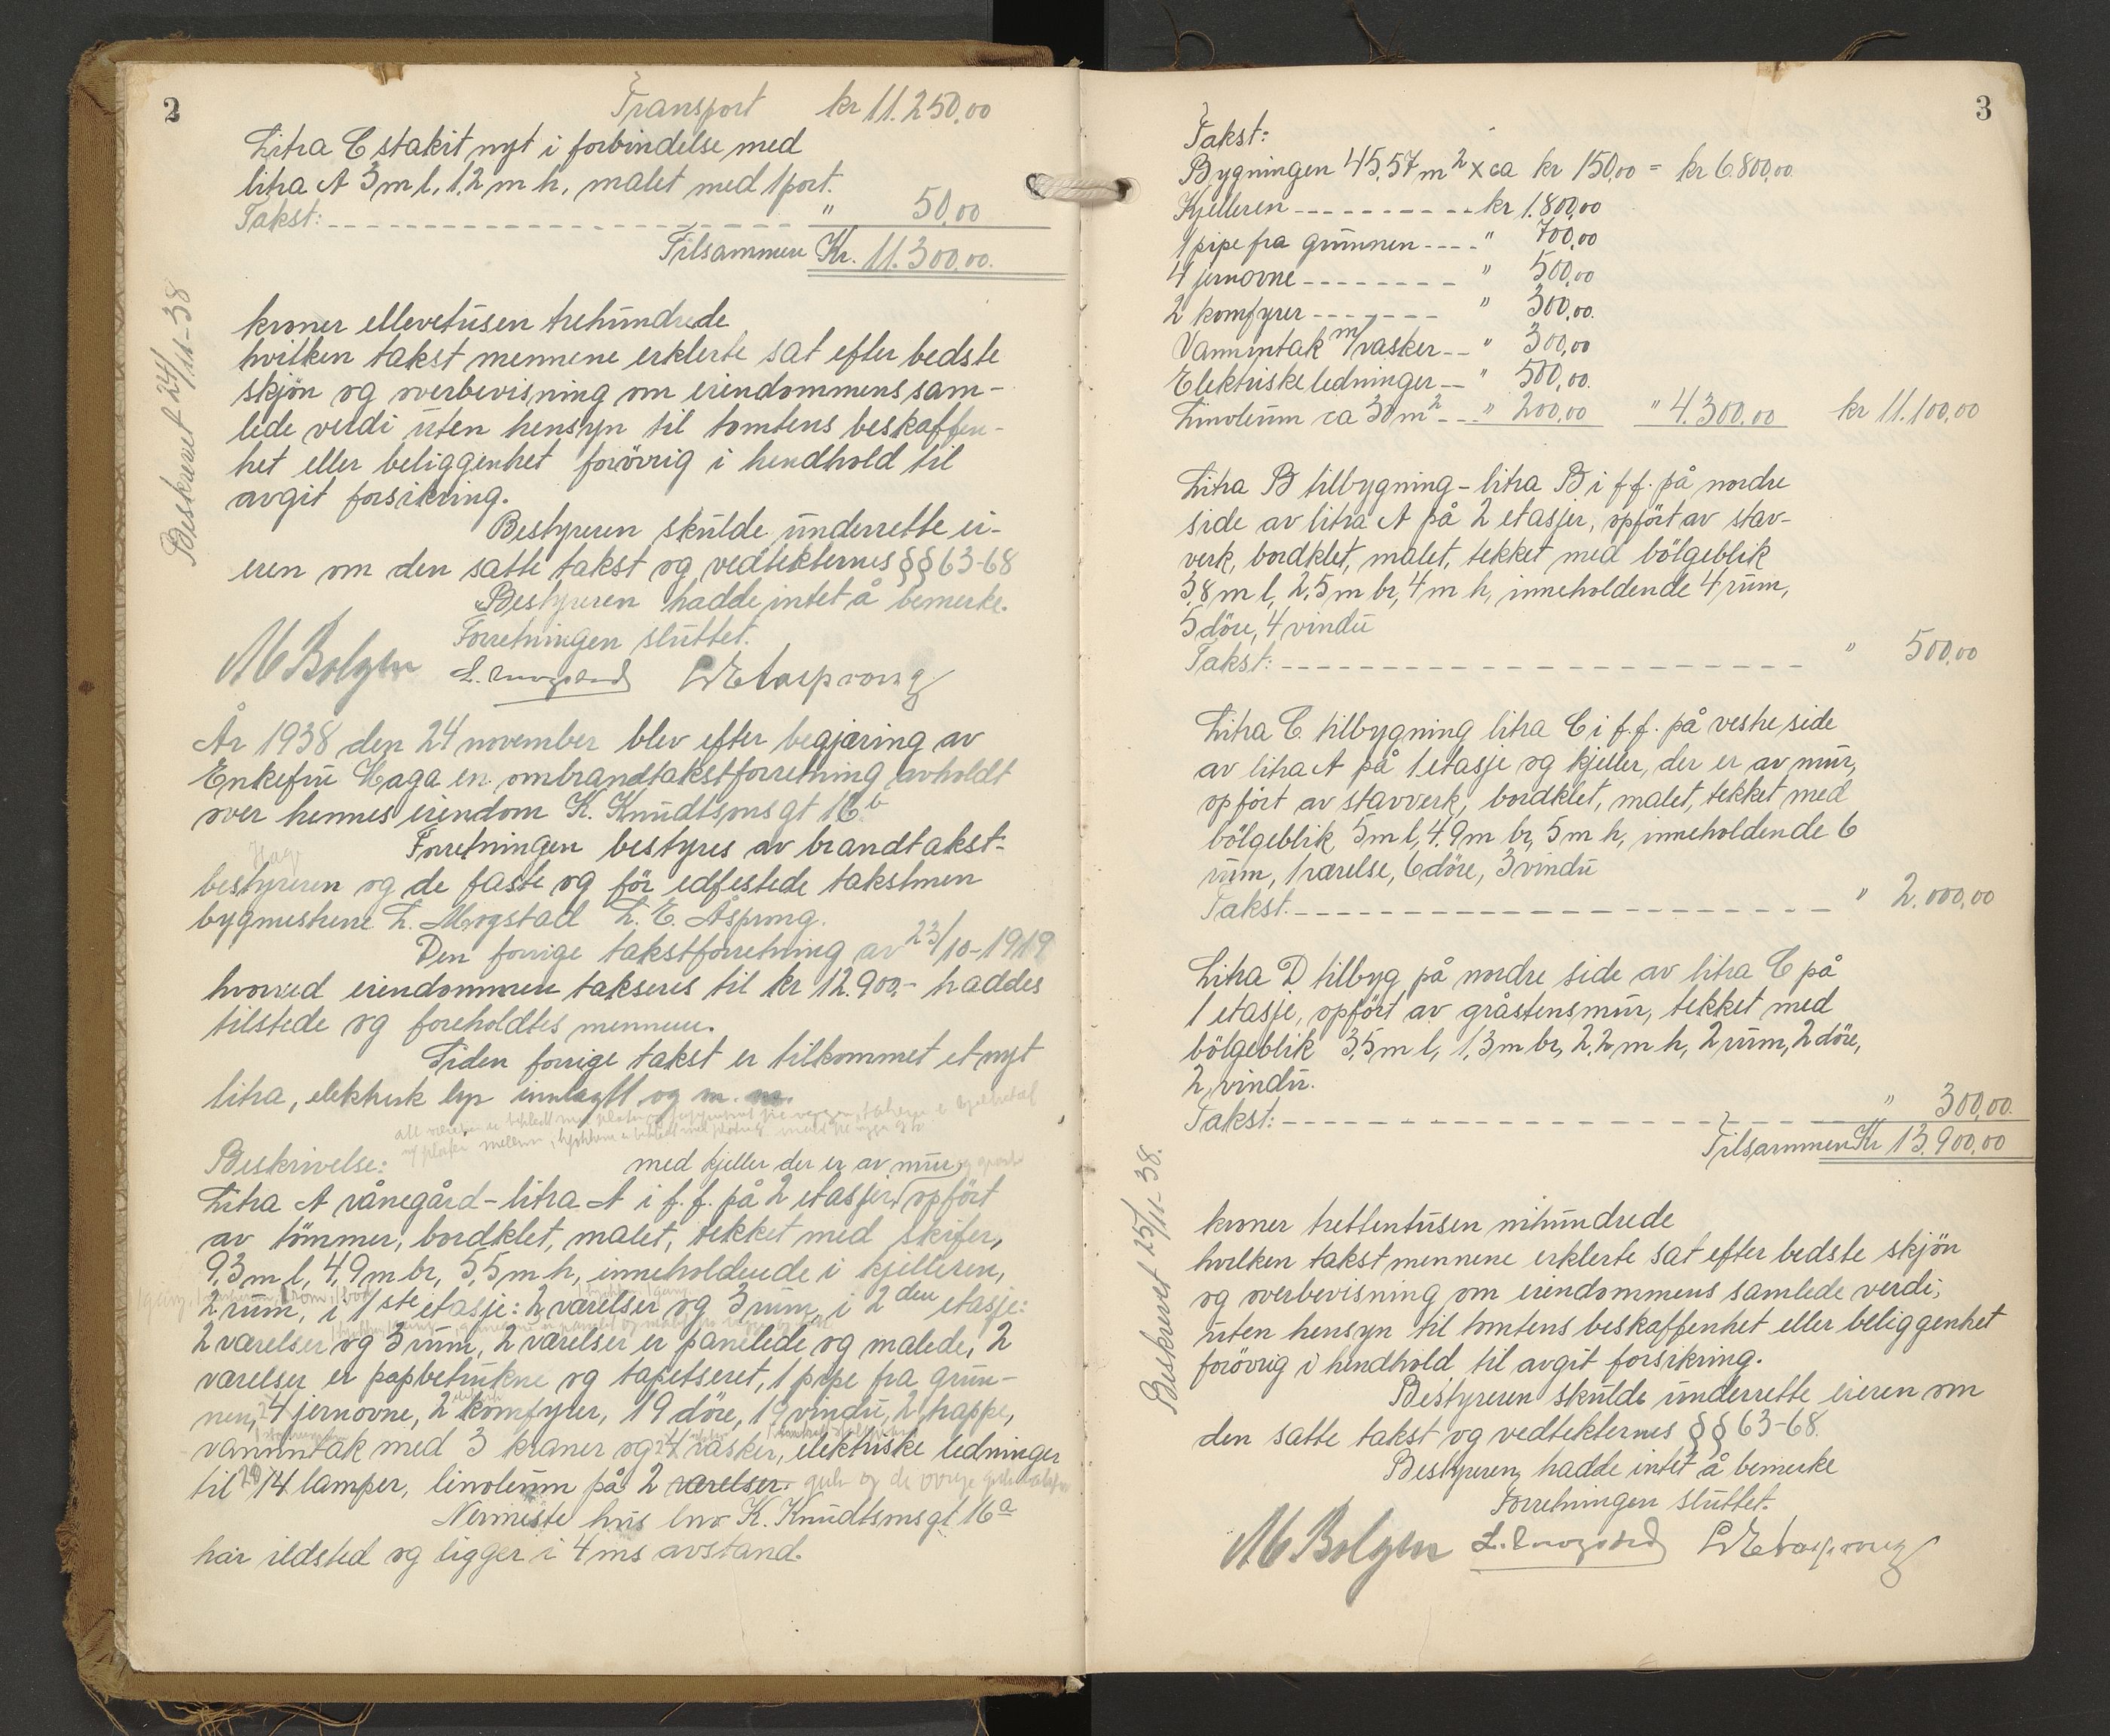 2
Transport kr 11.250,00
Litra C stakit nyt i forbindelse med
litra A 3 m l, 1,2 m h, malet med 1 port.
Takst: " 50,00
Tilsammen Kr. 11.300,00.
kroner ellevetusen trehundrede
hvilken takst mennene erklerte sat efter bedste
skjön og overbevisning om eiendommens sam-
lede verdi uten hensyn til tomtens beskaffen-
het eller beliggenhet forövrig i hendhold til
avgit forsikring.
Bestyreren skulde underrette ei-
eren om den satte takst og vedtekternes §§ 63-68
Bestyreren hadde intet å bemerke.
Forretningen sluttet.
Beskrevet 24/11-38
År 1938 den 24 november blev efter begjæring av
Enkefru Haga en ombrandtakstforretning avholdt
over hennes eiendom K. Knudtsons gt 16b
Forretningen bestyres av brandtakst-
bestyreren og de faste og för edfestede takstmen
bygmestrene L. Mogstad L. E. Åsprong.
Den forrige takstforretning av 23/10-1919
hvorved eiendommen takseres til kr 12.900,- haddes
tilstede og foreholdtes mennene.
Siden forrige takst er tilkommet et nyt
litra, elektrisk lys innlagtt og m. m.
Beskrivelse: med kjeller der er av mur
Litra A vånegård - litra A i f. f. på 2 etasjer opfört
av tömmer, bordklet, malet, tekket med skifer,
9,3 m l, 4,9 m br, 5,5 m h, inneholdende i kjelleren,
2 rum, i 1ste etasje: 2 værelser og 3 rum, i 2den etasje:
2 værelser og 3 rum, 2 værelser er panelede og malede, 2
værelser er papbetrukne og tapetseret, 1 pipe fra grun-
nen, 4 jernovne, 2 komfyrer, 19 döre, 19 vindu, 2 trappe,
vanninntak med 3 kraner og 4 vasker, elektriske ledninger
til 14 lamper, linoleum på 2 værelser.
Nermeste hus lnr K. Knudtsons gt 16a
har ildsted og ligger i 4 ms avstand.
3
Takst:
Bygningen 45,57 m2 x ca kr 150,00 = kr 6.800,00
Kjelleren kr 1.800,00
1 pipe fra grunnen " 700,00
4 jernovne " 500,00
2 komfyrer " 300,00.
Vanninntak m/vasker " 300,00
Elektriske ledninger " 500,00.
Linoleum ca 30 m2 " 200,00 " 4.300,00 kr 11.100,00
Litra B tilbygning - litra B i f.f. på nordre
side av litra A på 2 etasjer, opfört av stav-
verk, bordklet, malet, tekket med bölgeblik
3,8 m l, 2,5 m br, 4 m h, inneholdende 4 rum,
5 döre, 4 vindu
Takst: " 500,00
Litra C. tilbygning litra C i f.f. på vestre side
av litra A på 1 etasje og kjeller, der er av mur,
opfört av stavverk, bordklet, malet, tekket med
bölgeblik 5 m l, 4,9 m br, 5 m h, inneholdende 6
rum, 1 værelse, 6 döre, 3 vindu
Takst. " 2.000,00
Litra D tilbyg på nordre side av litra C på
1 etasje, opfört av gråstensmur, tekket med
bölgeblik 3,5 m l, 1,3 m br, 2,2 m h, 2 rum, 2 döre,
2 vindu.
Takst: " 300,00.
Tilsammen Kr 13.900,00
kroner trettentusen nihundrede
hvilken takst mennene erklerte sat efter bedste skjön
og overbevisning om eiendommens samlede verdi,
uten hensyn til tomtens beskaffenhet eller beliggenhet
forövrig i hendhold til avgit forsikring.
Bestyreren skulde underrette eieren om
den satte takst og vedtekternes §§ 63-68.
Bestyreren hadde intet å bemerke
Forretningen sluttet.
Beskrevet 25/11-38.